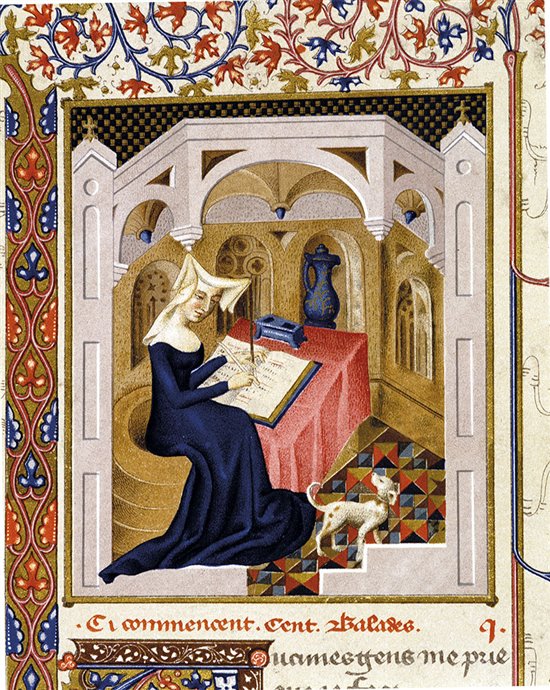 · Ci commencent. Cent. Balades. I.
ucunes gens me prie